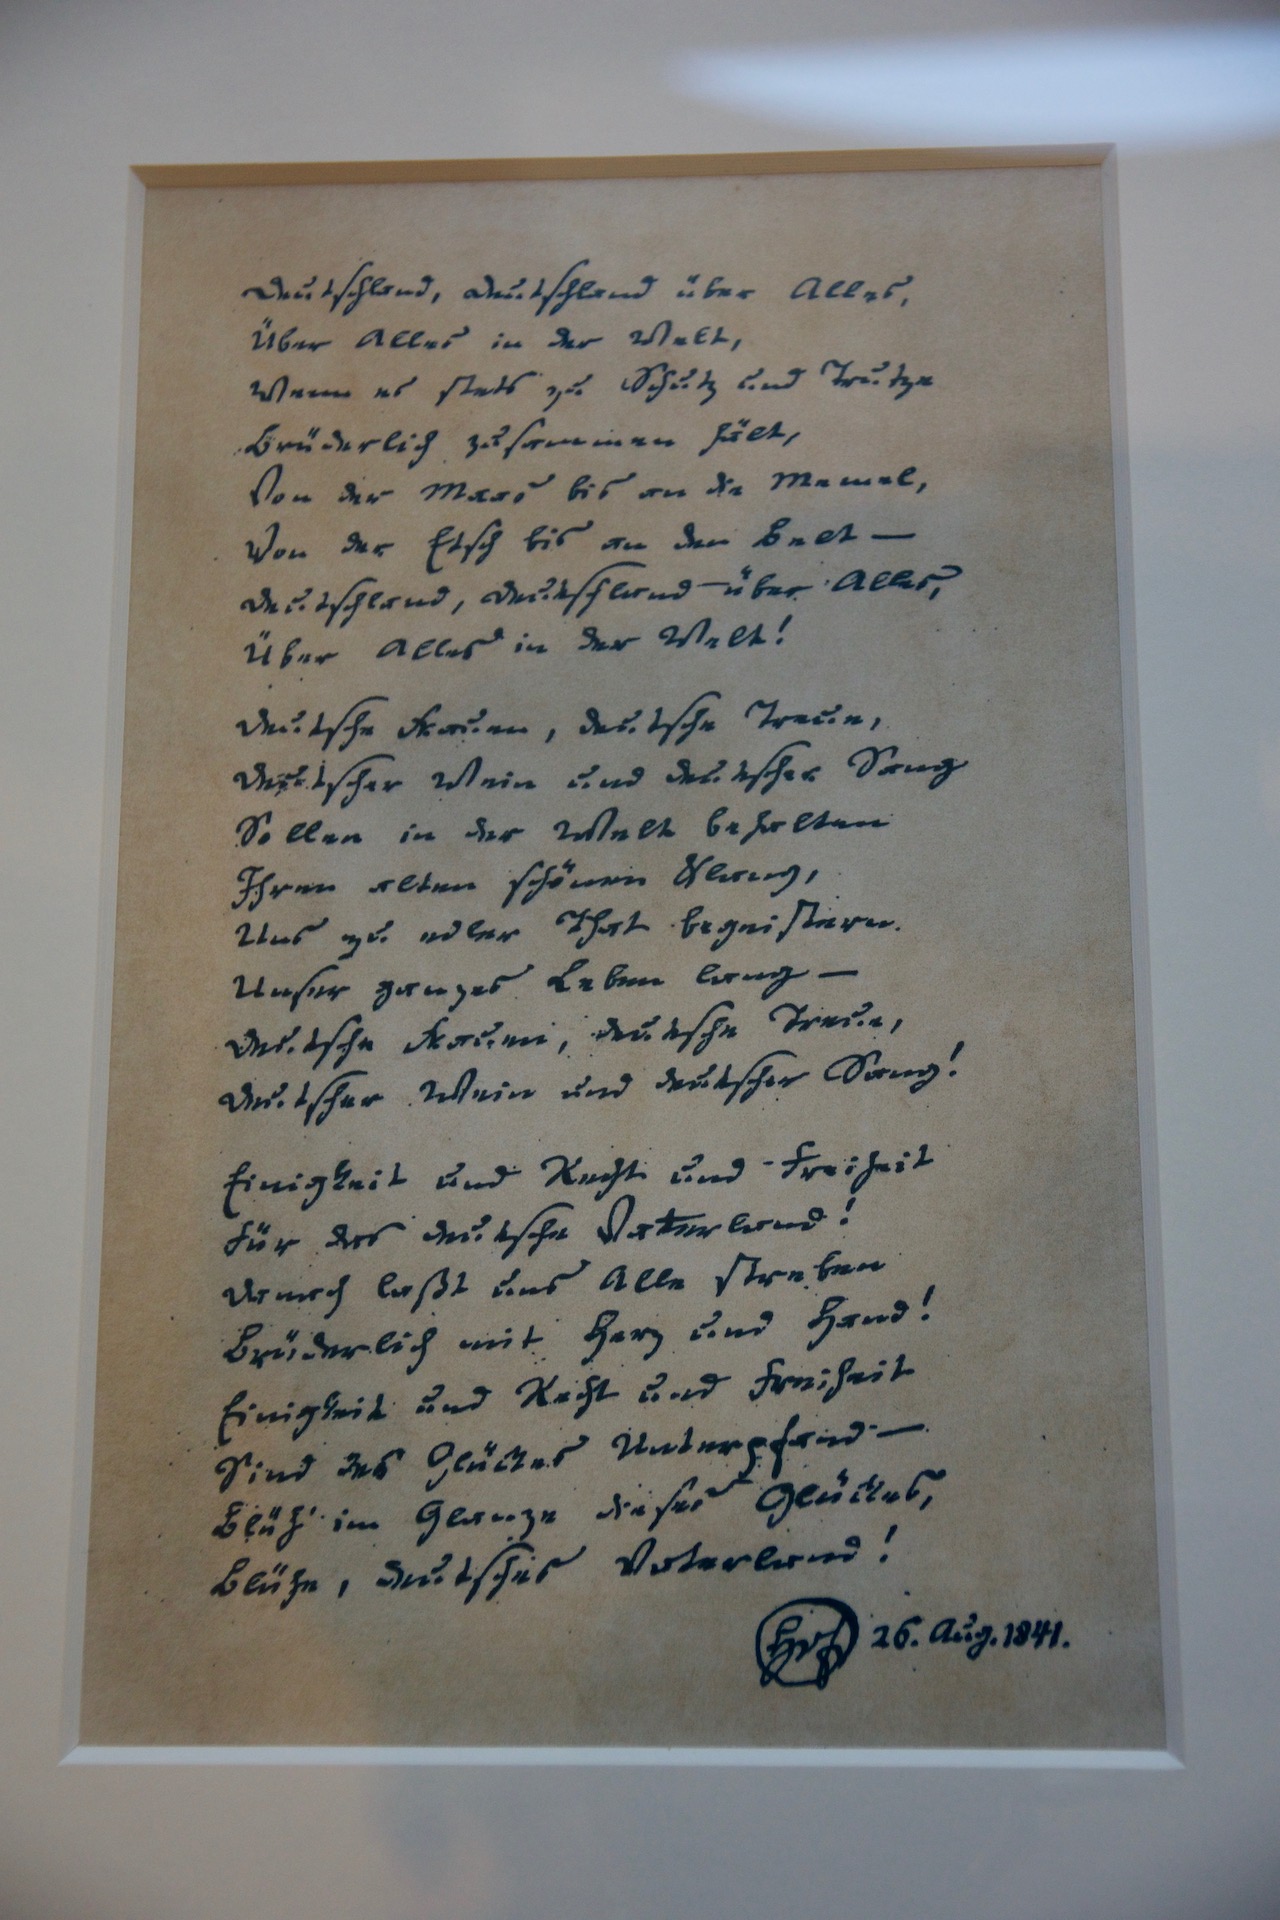 Deutschland, Deutschland über Alles,
Über Alles in der Welt,
Wenn es stets zu Schutz und Trutze
Brüderlich zusammen hält,
Von der Maas bis an die Memel,
Von der Etsch bis an den Belt —
Deutschland, Deutschland über Alles,
Über Alles in der Welt!
Deutsche Frauen, deutsche Treue,
Deutscher Wein und deutscher Sang
Sollen in der Welt behalten
Ihren alten schönen Klang,
Uns zu edler That begeistern
Unser ganzes Leben lang —
Deutsche Frauen, deutsche Treue,
Deutscher Wein und deutscher Sang!
Einigkeit und Recht und Freiheit
Für das deutsche Vaterland!
Danach laßt uns Alle streben
Brüderlich mit Herz und Hand!
Einigkeit und Recht und Freiheit
Sind des Glückes Unterpfand —
Blüh' im Glanze dieses Glückes,
Blühe, deutsches Vaterland!
HvF 26. Aug. 1841.